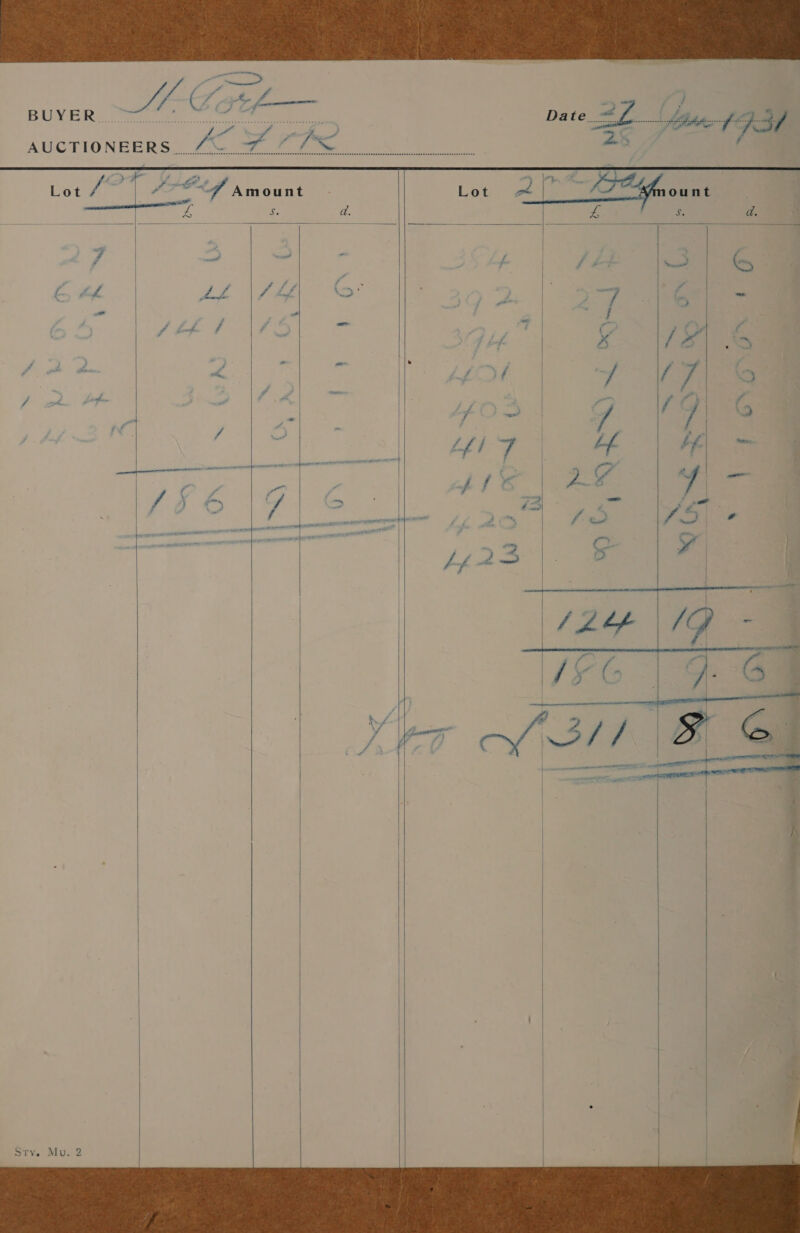 BUYER
Date 27 Jan 1931
28
AUCTIONEERS K F & R
Lot 1st Day Amount
£ s. d.
27 3 3 -
64 4 14 6
65 141 15 -
122 2 - -
124 33 12 -
1 5 -
186 9 6
Lot 2nd Day Amount
£ s. d.
354 14 3 6
392 27 6 -
394 8 18 6
401 7 17 6
403 9 19 6
417 4 4 -
418 28 7 -
420 15 15 -
423 8 8
124 19 -
186 9. 6
£311 8 6
STY. MU. 2